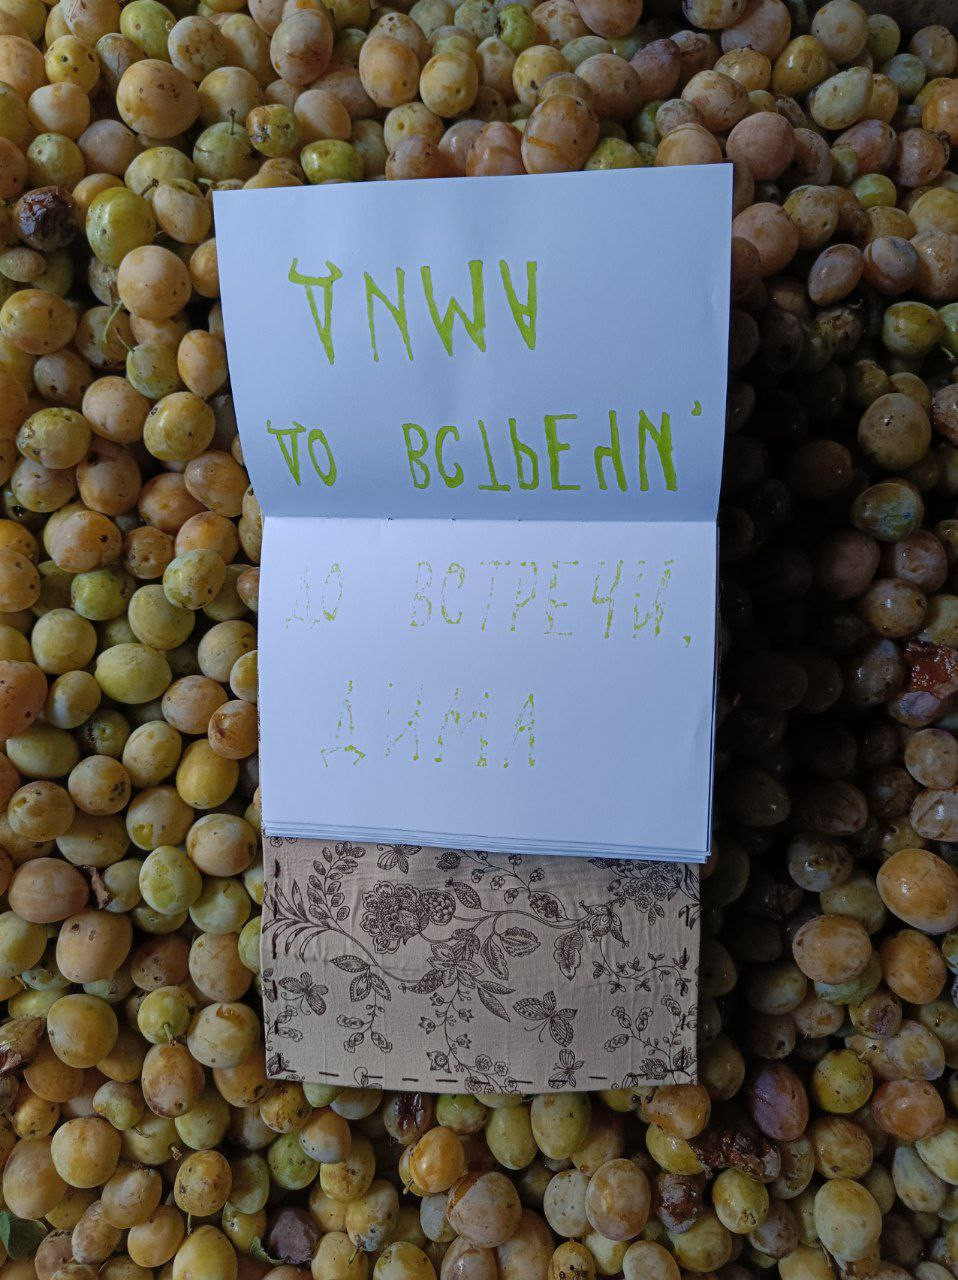 ДИМА
ДО ВСТРЕЧИ,
ДО ВСТРЕЧИ,
ДИМА